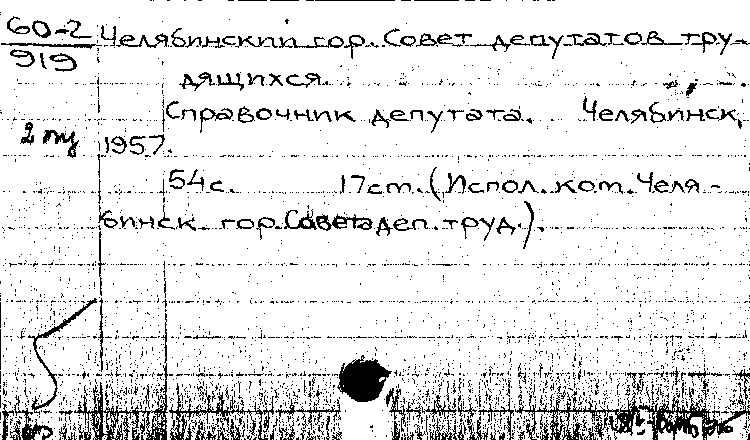 60-2 Челябинский гор. Совет депутатов тру-
919
дящихся.
Справочник депутата. Челябинск,
2 1957.
54с. 17cm. (Испол. ком. Челя-
бинск. гор. Совета деп. труд.).